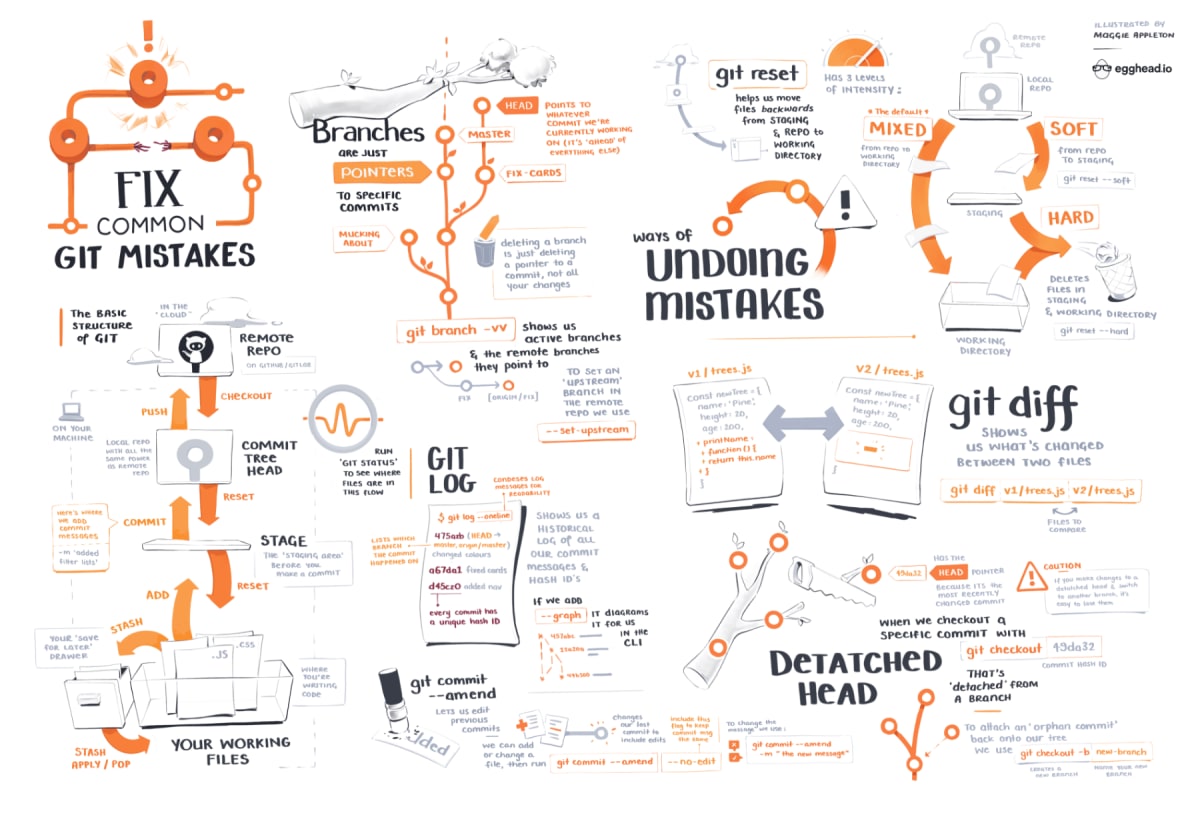 FIX
COMMON
GIT MISTAKES
The BASIC
STRUCTURE
of GIT
IN THE
"CLOUD"
REMOTE
REPO
ON GITHUB/GITLAB
PUSH
CHECKOUT
ON YOUR
MACHINE
LOCAL REPO
WITH ALL THE
SAME POWER
AS REMOTE
REPO
COMMIT
TREE
HEAD
RUN
'GIT STATUS'
TO SEE WHERE
FILES ARE IN
THIS FLOW
RESET
HERE'S WHERE
WE ADD
COMMIT
MESSAGES
-m 'added
filter lists'
COMMIT
STAGE
THE 'STAGING AREA'
BEFORE YOU
MAKE A COMMIT
RESET
ADD
STASH
YOUR 'SAVE
FOR LATER'
DRAWER
.JS
.CSS
WHERE
YOU'RE
WRITING
CODE
STASH
APPLY / POP
YOUR WORKING
FILES
Branches
ARE JUST
POINTERS
TO SPECIFIC
COMMITS
HEAD
POINTS TO
WHATEVER
COMMIT WE'RE
CURRENTLY WORKING
ON (IT'S 'AHEAD' OF
EVERYTHING ELSE)
MASTER
FIX-CARDS
MUCKING
ABOUT
deleting a branch
is just deleting
a pointer to a
commit, not all
your changes
git branch -vv
shows us
active branches
& the remote branches
they point to
FIX
[ORIGIN/FIX]
TO SET AN
'UPSTREAM'
BRANCH IN
THE REMOTE
REPO WE USE
--set-upstream
GIT
LOG
CONDENSES LOG
MESSAGES FOR
READABILITY
$ git log --oneline
475aeb (HEAD →
master, origin/master)
changed colours
a67da1 fixed cards
d45cz0 added nav
every commit has
a unique hash ID
LISTS WHICH
BRANCH
THE COMMIT
HAPPENED ON
SHOWS US A
HISTORICAL
LOG OF ALL
OUR COMMIT
MESSAGES &
HASH ID'S
IF WE ADD
--graph
IT DIAGRAMS
IT FOR US
IN the
CLI
git commit
--amend
LETS US EDIT
PREVIOUS
COMMITS
we can add
or change a
file, then run
git commit --amend
--no-edit
changes
our last
commit to
include edits
include this
flag to keep
commit msg
the same
TO CHANGE the
MESSAGE WE USE:
git commit --amend
-m "the new message"
WAYS OF
UNDOING
MISTAKES
git reset
helps us move
files backwards
from STAGING
& REPO to
WORKING
DIRECTORY
HAS 3 LEVELS
OF INTENSITY:
REMOTE
REPO
LOCAL
REPO
*The default*
MIXED
from REPO to
WORKING
DIRECTORY
SOFT
from REPO
TO STAGING
git reset --soft
STAGING
HARD
DELETES
FILES IN
STAGING
& WORKING DIRECTORY
git reset --hard
WORKING
DIRECTORY
ILLUSTRATED BY
MAGGIE APPLETON
egghead.io
v1/trees.js
const newTree = {
name: 'Pine',
height: 20,
age: 200,
+ printName:
+ function() {
+ return this.name
+ }
}
v2/trees.js
const newTree = {
name: 'Pine',
height: 20,
age: 200,
}
git diff
SHOWS
US WHAT'S CHANGED
BETWEEN TWO FILES
git diff v1/trees.js v2/trees.js
FILES TO
COMPARE
DETATCHED
HEAD
49da32
HEAD
HAS THE
POINTER
BECAUSE ITS THE
MOST RECENTLY
CHANGED COMMIT
CAUTION
If you make changes to a
detatched head & switch
to another branch, it's
easy to lose them
WHEN WE CHECKOUT a
SPECIFIC COMMIT WITH
git checkout 49da32
COMMIT HASH ID
THAT'S
'detatched' FROM
A BRANCH
To attach an 'orphan commit'
back onto our tree
we use
git checkout -b new-branch
CREATES A
NEW BRANCH
NAME YOUR NEW
BRANCH